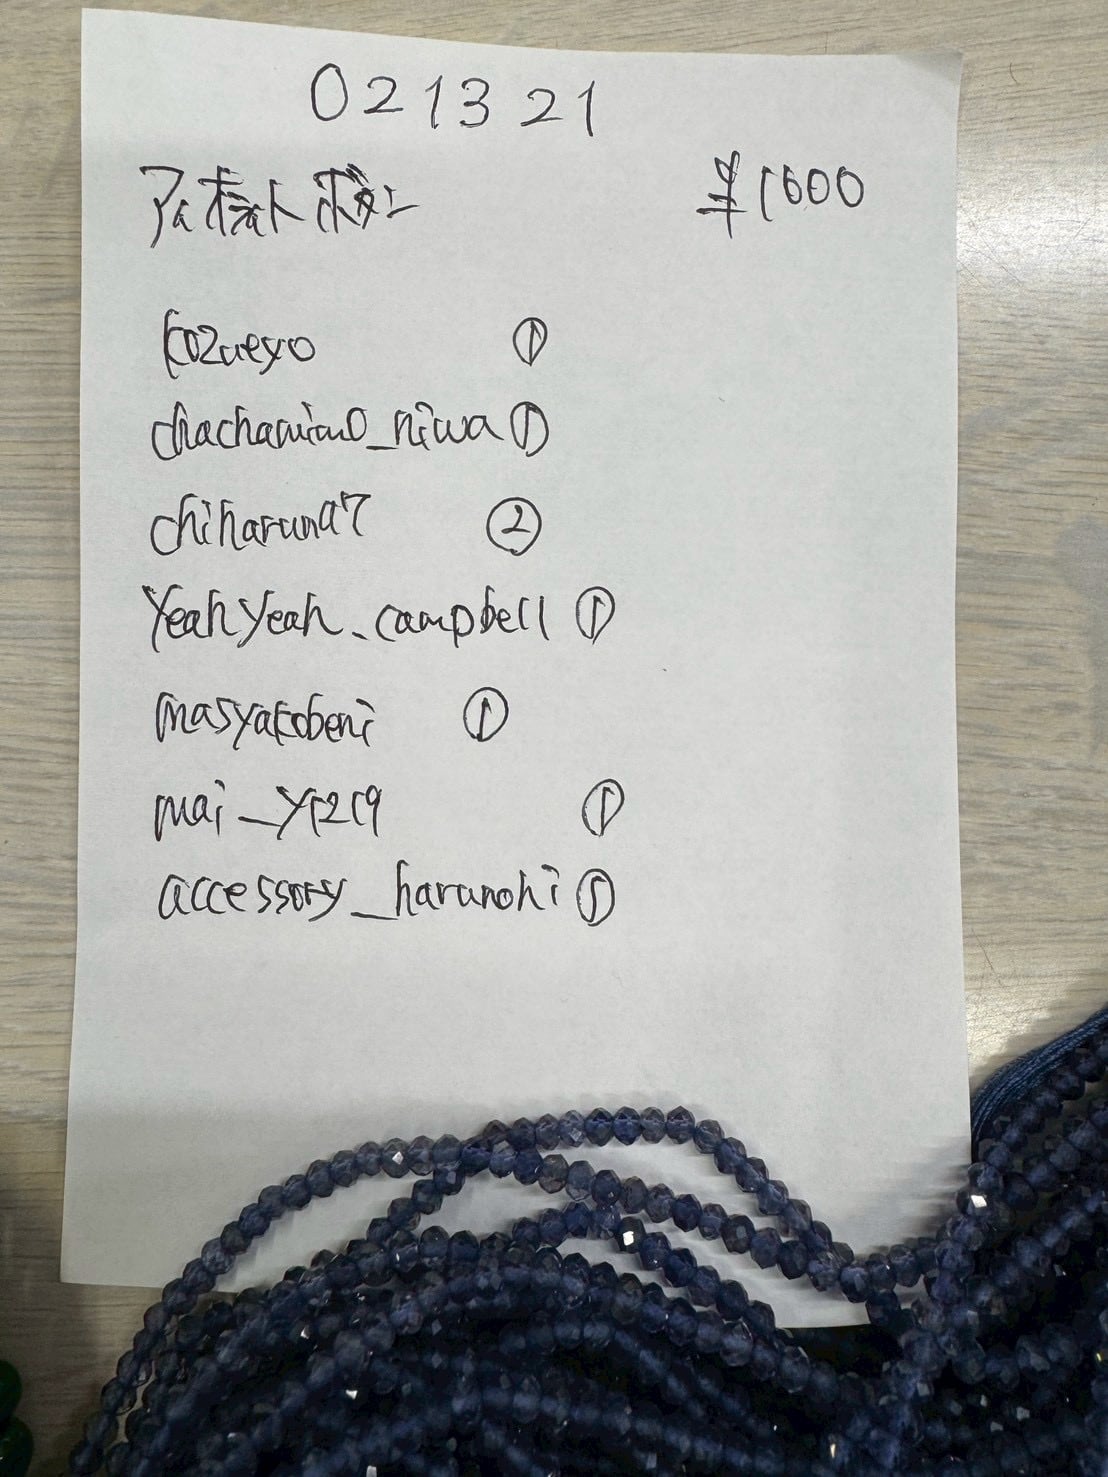 021321
¥1000
kozueyo
chachamimo_niwa ①
chiharuna7 ②
Yeahyeah_campbell ①
masyakobeni ①
mai_y1219 ①
accessory_harunohi ①